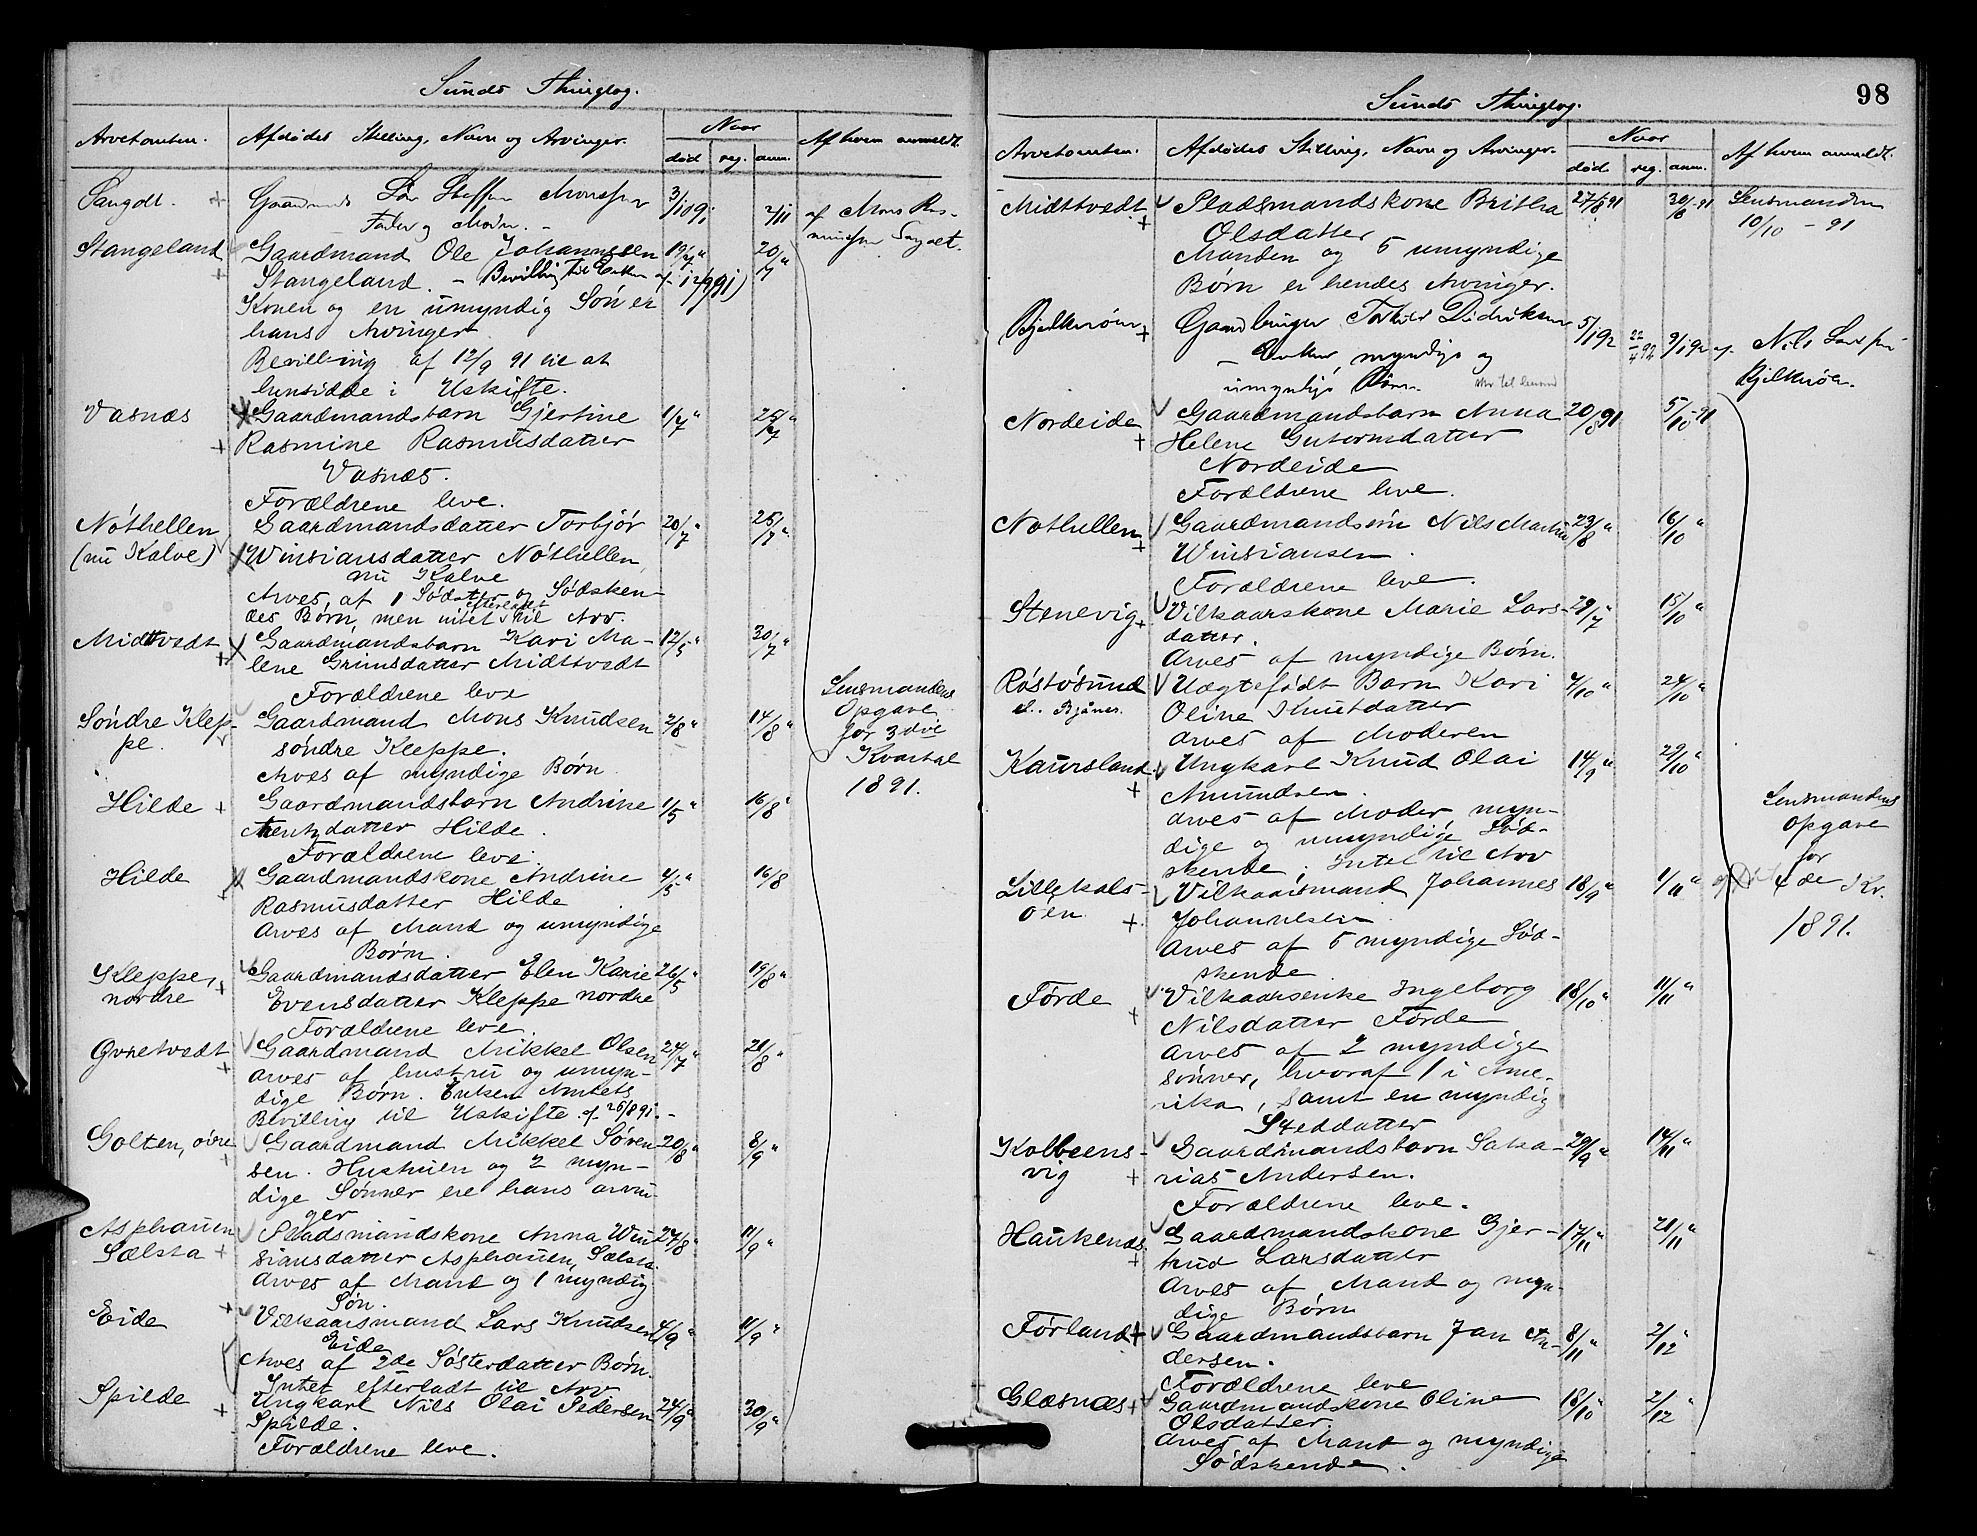 Sunds Thinglag.
Arvetomten. Afdødes Stilling, Navn og Arvinger. Naar Af hvem anmeldt.
død reg. anm.
Sangolt. + Gaardmands Søn Steffen Monssen 3/10 91 2/11 af Mons Ras-
Fader og Moder. - mussen Sangolt.
Stangeland Gaardmand Ole Johannessen 19/7 " 20/7 "
+ Stangeland. - Bevilling til Enken af 12/9 91)
Konen og en umyndig Søn er
hans Arvinger
Bevilling af 12/9 91 til at
hensidde i Uskifte.
Vasnæs Gaardmandsbarn Gjertine 1/7 " 25/7 "
+ Rasmine Rasmusdatter
Vasnæs.
Forældrene leve.
Nóthellen Gaardmandsdatter Torbjór 20/7 " 25/7 "
(nu Kalve) Winsiansdatter Nóthellen,
nu Kalve
Arves af 1 Sódatter og Södsken-
des Børn, men intet efterladt til Arv.
Midtvedt Gaardmandsbarn Kari Ma- 12/5 " 30/7 "
+ lene Grimsdatter Midttvedt
Forældrene leve
Sóndre Klep- Gaardmand Mons Knudsen 2/8 " 14/8 "
pe. søndre Kleppe.
Arves af myndige Børn.
Hilde + Gaardmandsbarn Andrine 1/5 " 16/8 "
Arentzdatter Hilde.
Forældrene leve.
Hilde Gaardmandskone Andrine 4/5 " 16/8
+ Rasmusdatter Hilde
Arves af Mand og umyndige
Børn.
Kleppe, Gaardmandsdatter Elen Karie 26/5 " 19/8 "
nordre + Evensdatter Kleppe nordre
Forældrene leve.
Øvretvedt Gaardmand Mikkel Olsen 24/7 " 21/8 "
+ Arves af hustru og umyn-
dige Børn. Enken Amtets
Bevilling til Uskifte af 25/8 91. -
Golten, óvre Gaardmand Mikkel Sóren- 20/8 " 8/9 "
+ sen. Hustruen og 2 myn-
dige Sønner ere hans arvin-
ger
Asphauen Pladsmandskone Anna Win- 24/8 " 11/9 "
Sælsta + siansdatter Asphauen, Sælsta.
Arves af Mand og 1 myndig
Søn.
Eide + Vilkaarsmand Lars Knudsen 4/9 " 11/9 "
Eide
Arves af 2de Sósterdatter Børn.
Intet efterladt til Arv
Spilde Ungkarl Nils Olai Pedersen 24/9 " 30/9 "
+ Spilde.
Forældrene leve.
Lensmandens
Opgave
for 3die
Kvartal
1891.
98
Sunds Thinglag.
Arvetomten. Afdødes Stilling, Navn og Arvinger. Naar Af hvem anmeldt.
død. reg. anm.
Midttvedt + Pladsmandskone Britha 27/8 91 30/8 91 Lensmanden
Olsdatter 10/10 - 91
Manden og 5 umyndige
Børn er hendes Arvinger.
Bjelkeróen + Gaardbruger Torkild Didriksen 5/1 92 22/4 92 9/1 92 af Nils Larssen
- Enken, myndige og Bjelkeróen.
umyndige Børn.
Nordeide Gaardmandsbarn Anna 20/8 91 5/10 91
+ Helene Gutormsdatter
Nordeide
Forældrene leve.
Nothellen + Gaardmandssón Nils Martin 23/8 " 16/10 "
Winsiansen.
Forældrene leve.
Stenevig + Vilkaarskone Marie Lars- 29/7 " 15/10 "
datter.
Arves af myndige Børn.
Róstósund Uægtefódt Barn Kari 4/10 " 24/10 "
Bjånes. Oline Knutdatter
Arves af Moderen
Kaursland Ungkarl Knud Olai 14/9 " 29/10 "
+ Amundsen.
Arves af Moder, myn-
dige og umyndige Sód-
skende; Intet til Arv
Lillekals- Vilkaarsmand Johannes 18/9 " 1/11 "
óen + Johannesen.
Arves af 5 myndige Sód-
skende
Fórde Vilkaarsenke Ingeborg 18/10 " 11/11 "
+ Nilsdatter Fórde
Arves af 2 myndige
sønner, hvoraf 1 i Ame-
rika, samt en myndig
Steddatter
Kolbeens- Gaardmandsbarn Saka- 29/9 " 14/11 "
vig + rias Andersen.
Forældrene leve.
Haukenæs Gaardmandskone Gjer- 17/11 " 21/11 "
+ trud Larsdatter
Arves af Mand og myn-
dige Børn
Fórland + Gaardmandsbarn Jan An- 8/11 " 2/12 "
dersen.
Forældrene leve
Glæsnæs + Gaardmandskone Oline 18/10 " 2/12 "
Olsdatter.
Arves af Mand og myndige
Södskende.
Lensmandens
Opgave
for
4de Kv.
1891.